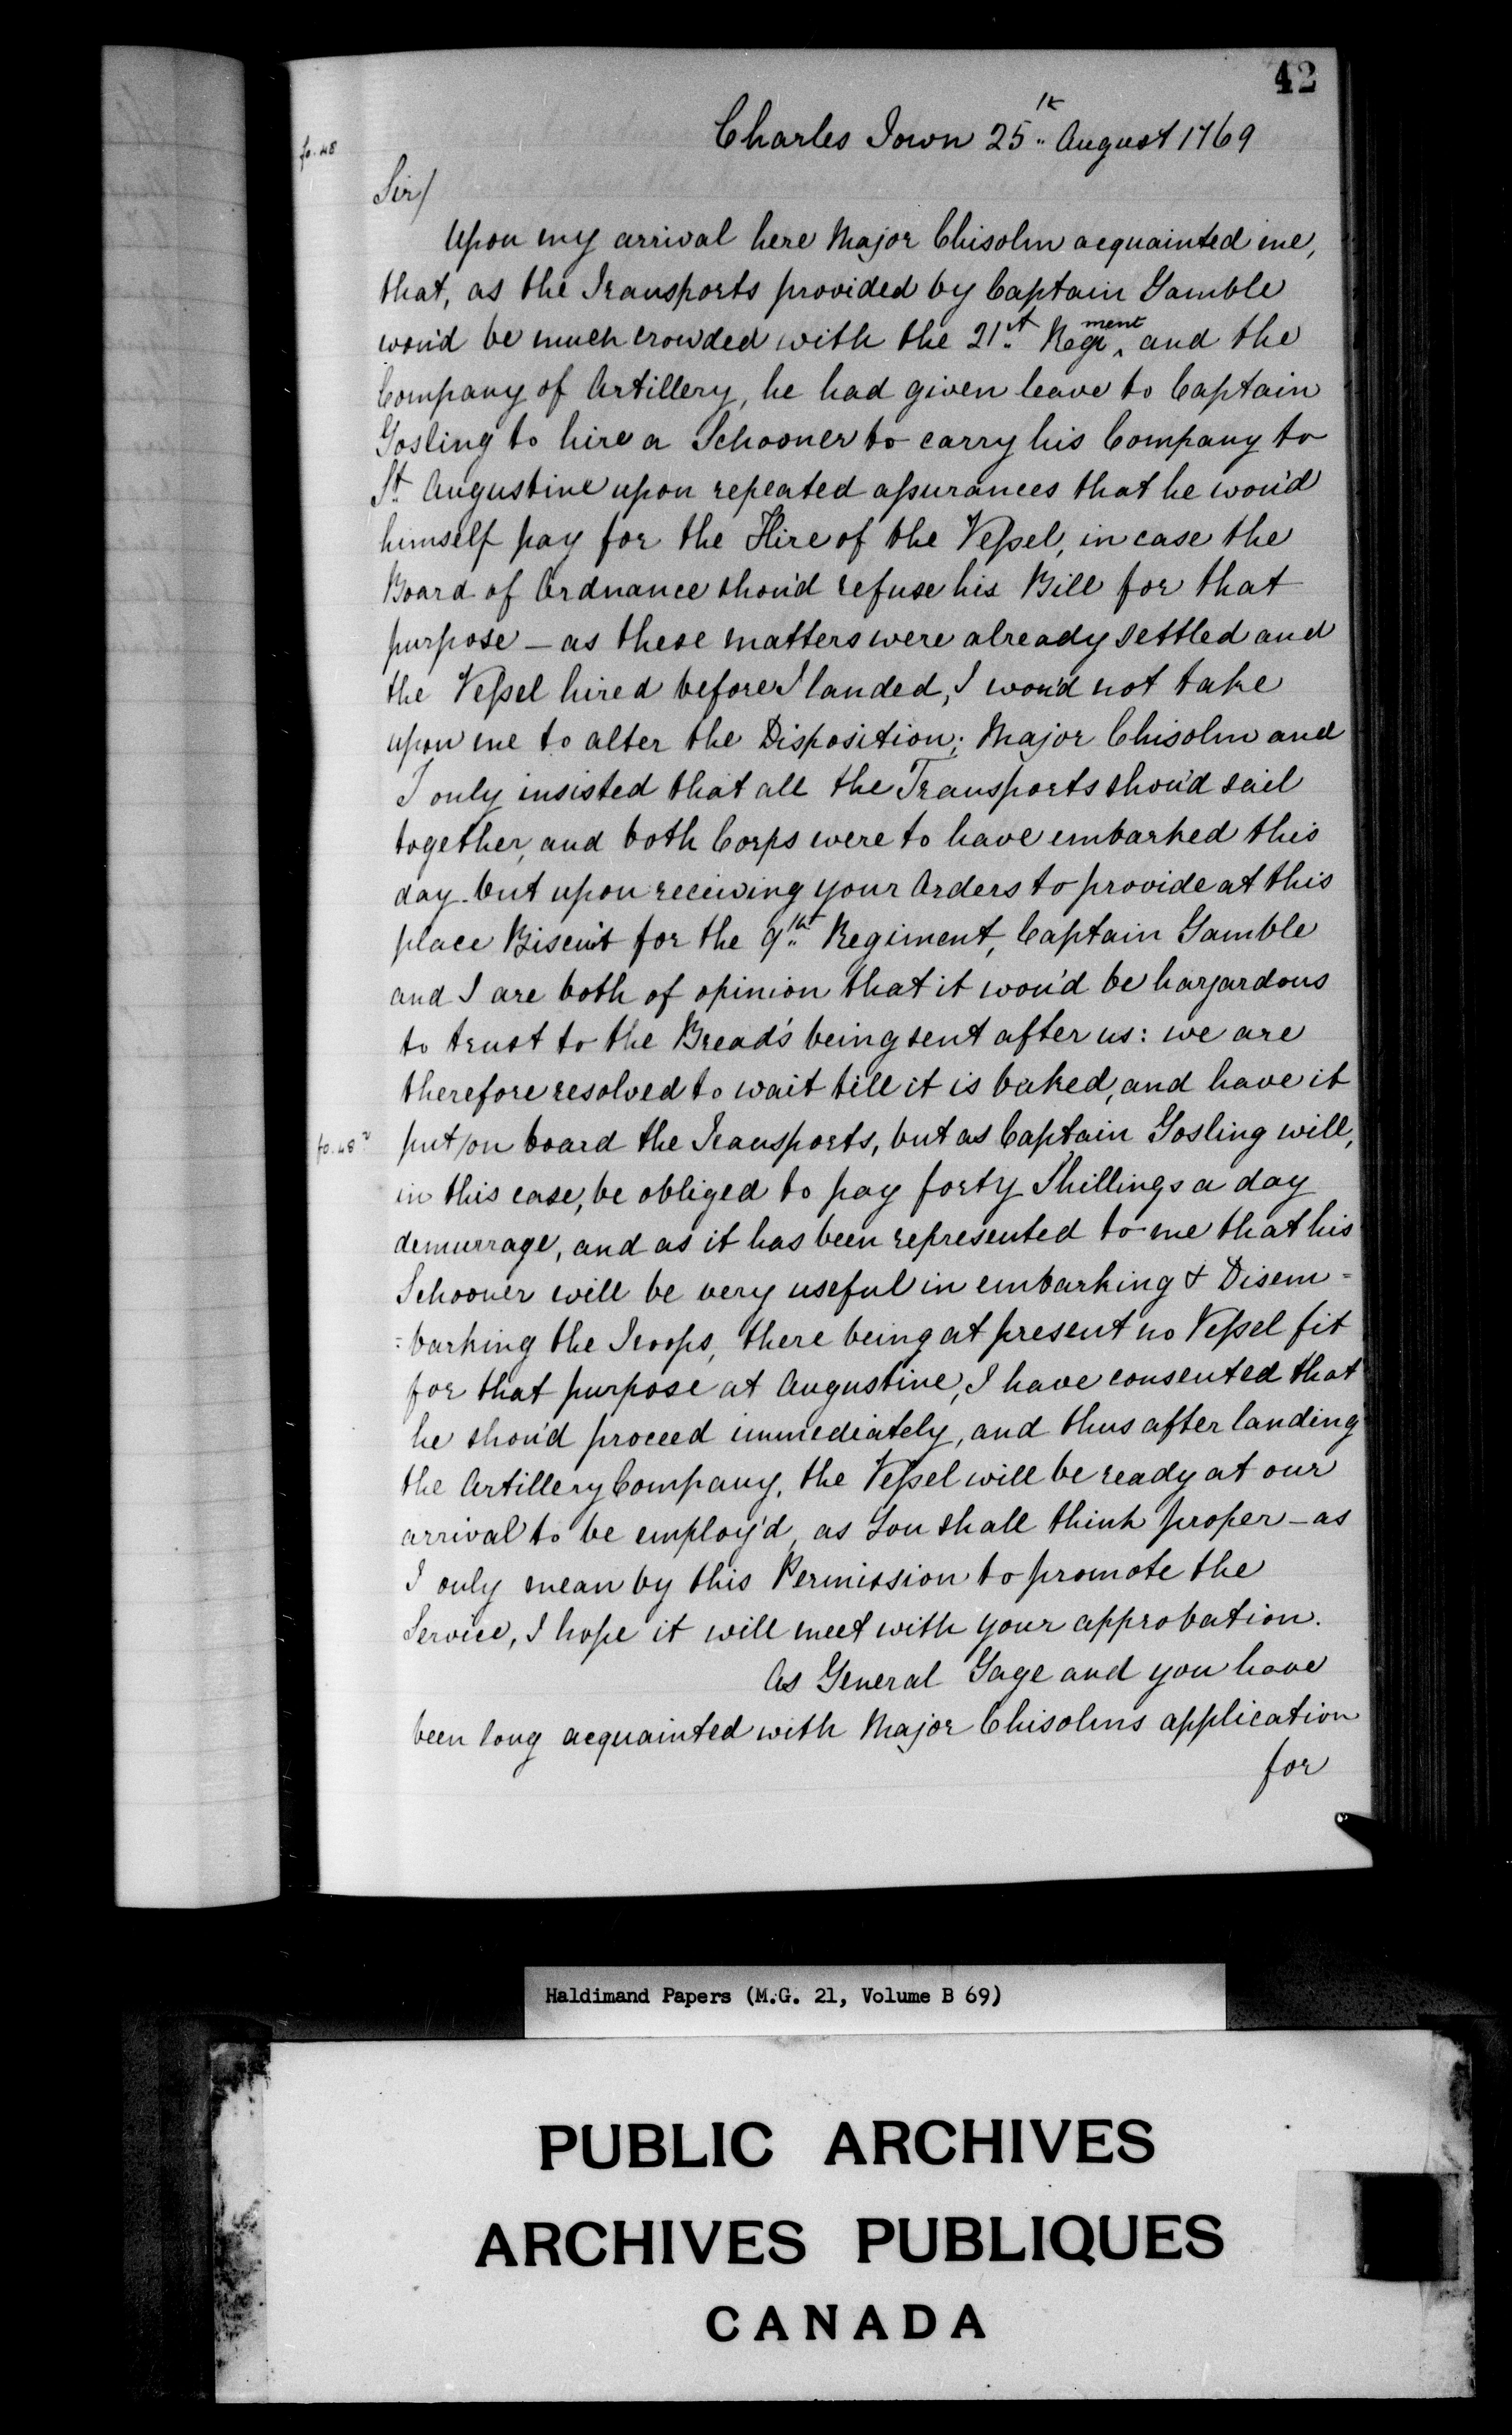 42
Charles Town 25th August 1769
fo. 48
Sir/
Upon my arrival here Major Chisolm acquainted me,
that, as the Transports provided by Captain Gamble
wou'd be much crowded with the 21st Regiment and the
Company of Artillery, he had given leave to Captain
Gosling to hire a Schooner to carry his Company to
St Augustine upon repeated assurances that he wou'd
himself pay for the Hire of the Vessel, in case the
Board of Ordnance shou'd refuse his Bill for that
purpose – as these matters were already settled and
the Vessel hired before I landed, I wou'd not take
upon me to alter the Disposition; Major Chisolm and
I only insisted that all the Transports shou'd sail
together, and both Corps were to have embarked this
day. but upon receiving your Orders to provide at this
place Biscuit for the 9th Regiment, Captain Gamble
and I are both of opinion that it wou'd be hazardous
to trust to the Bread's being sent after us: we are
therefore resolved to wait till it is baked, and have it
fo. 48v
put/on board the Transports, but as Captain Gosling will,
in this case, be obliged to pay forty Shillings a day
demurrage, and as it has been represented to me that his
Schooner will be very useful in embarking & Disem=
=barking the Troops, there being at present no Vessel fit
for that purpose at Augustine, I have consented that
he shou'd proceed immediately, and thus after landing
the Artillery Company, the Vessel will be ready at our
arrival to be employ'd, as You shall think proper – as
I only mean by this Permission to promote the
Service, I hope it will meet with your approbation.
As General Gage and you have
been long acquainted with Major Chisolms application
for
Haldimand Papers (M.G. 21, Volume B 69)
PUBLIC ARCHIVES
ARCHIVES PUBLIQUES
CANADA